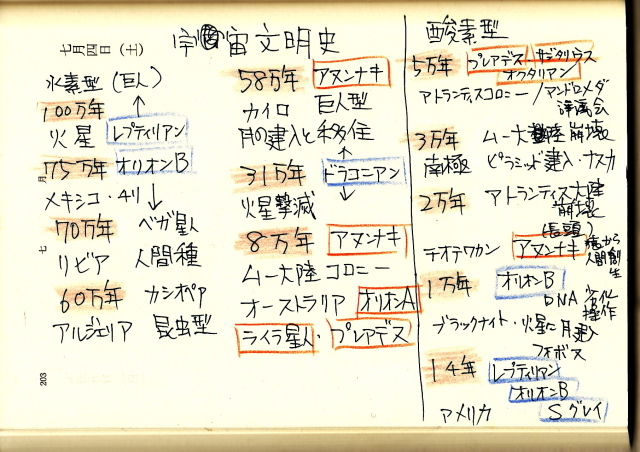 七月四日(土)
宇宙文明史
水素型(巨人)
100万年
火星 レプティリアン
75万年 オリオンB
メキシコ・4リ
70万年 ベガ星人
リビア 人間種
60万年 カシオペア
アルジェリア 昆虫型
58万年 アヌンナキ
カイロ 巨人型
月の建入と移住
31万年 ドラコニアン
火星撃滅
8万年 アヌンナキ
ムー大陸コロニー
オーストラリア オリオンA
ライラ星人・プレアデス
酸素型
5万年 プレアデス・サジタリウス
オクタリアン
アトランティスコロニー/アンドロメダ
3万年 ムー大陸崩壊
南極 ピラミッド建入・ナスカ
2万年 アトランティス大陸
崩壊
(長頭)
テオテワカン アヌンナキ 猿から
人間創生
1万年 オリオンB
DNA 劣化
操作
ブラックナイト・火星に月建入
フォボス
14年 レプティリアン
オリオンB
アメリカ Sグレイ
七
月
203